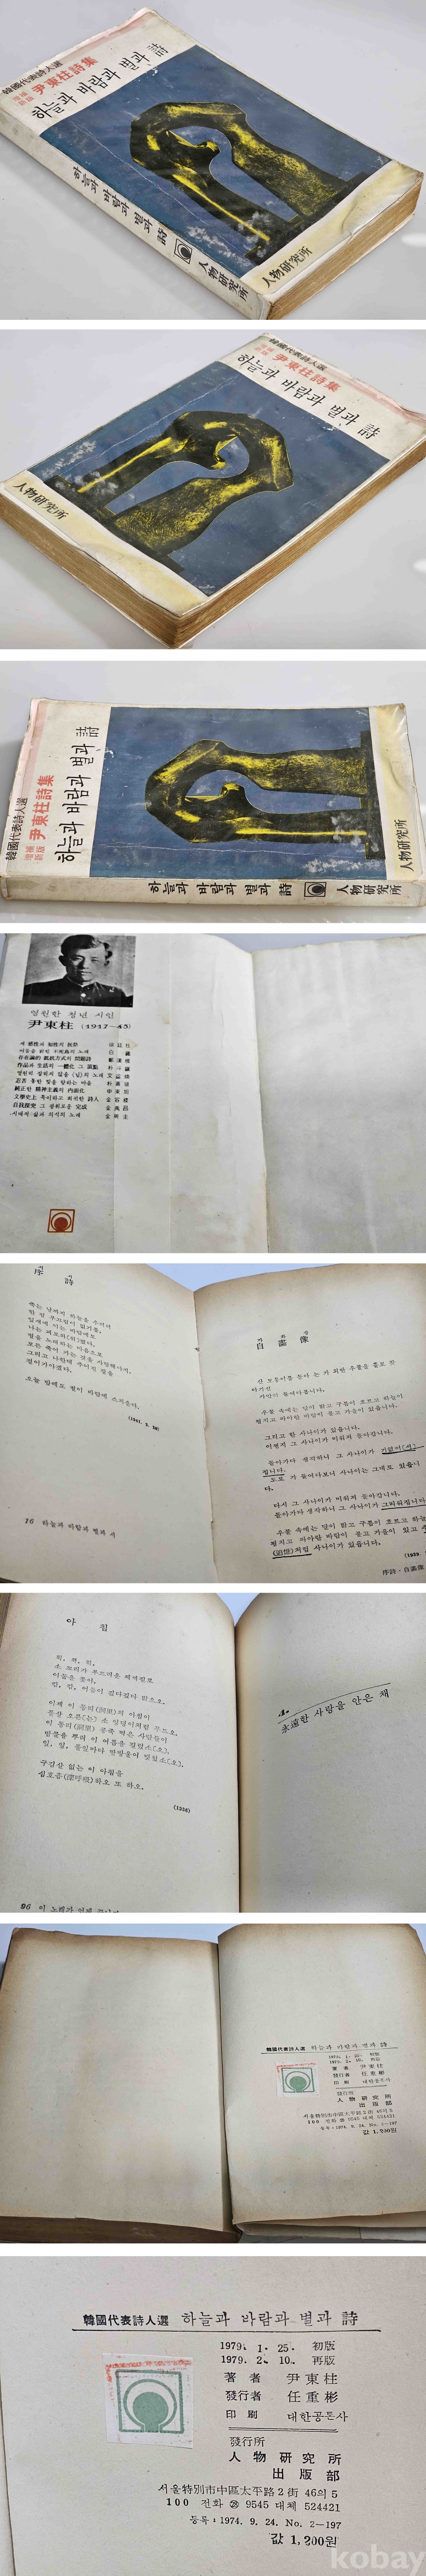 韓國代表詩人選
增補新版 尹東柱詩集
하늘과 바람과 별과 詩
人物研究所
하늘과 바람과 별과 詩 人物研究所
韓國代表詩人選
增補新版 尹東柱詩集
하늘과 바람과 별과 詩
人物研究所
韓國代表詩人選
增補新版 尹東柱詩集
하늘과 바람과 별과 詩
人物研究所
하늘과 바람과 별과 詩 人物研究所
영원한 청년 시인
尹東柱 (1917~45)
序 詩
죽는 날까지 하늘을 우러러
한 점 부끄럼이 없기를,
잎새에 이는 바람에도
나는 괴로와(워)했다.
별을 노래하는 마음으로
모든 죽어 가는 것을 사랑해야지,
그리고 나한테 주어진 길을
걸어가야겠다.
오늘 밤에도 별이 바람에 스치운다.
16 하늘과 바람과 별과 시
自畵像
산 모퉁이를 돌아 논 가 외딴 우물을 홀로 찾
아가선
가만히 들여다봅니다.
우물 속에는 달이 밝고 구름이 흐르고 하늘이
펼치고 파아란 바람이 불고 가을이 있습니다.
그리고 한 사나이가 있습니다.
어쩐지 그 사나이가 미워져 돌아갑니다.
돌아가다 생각하니 그 사나이가 가엾어(서)
집니다.
도로 가 들여다보니 사나이는 그대로 있읍니
다.
다시 그 사나이가 미워져 돌아갑니다.
돌아가다 생각하니 그 사나이가 그리워집니다
우물 속에는 달이 밝고 구름이 흐르고 하늘
펼치고 파아란 바람이 불고 가을이 있고
(追憶)처럼 사나이가 있읍니다.
(1939.
序詩·自畵像
아 침
휙, 휙, 휙,
소 꼬리가 부드러운 채찍질로
어둠을 쫓아,
캄, 캄, 어둠이 깊다깊다 밝으오.
이제 이 동리(洞里)의 아침이
풀살 오른(는) 소 엉덩이처럼 푸드오.
이 동리(洞里) 콩죽 먹은 사람들이
땀물을 뿌려 이 여름을 길렀소(오).
잎, 잎, 풀잎마다 땀방울이 맺혔소(오).
구김살 없는 이 아침을
심호흡(深呼吸)하오 또 하오.
(1936)
4.
永遠한 사랑을 안은 채
韓國代表詩人選 하늘과 바람과 별과 詩
1979. 1. 25. 初版
1979. 2. 10. 再版
著者 尹東柱
發行者 任重彬
印刷 대한공론사
發行所
人物研究所
出版部
서울特別市中區太平路2街 46의 5
100 전화 ㉘ 9545 대체 524421
등록 : 1974. 9. 24. No. 2—197
값 1,200원
韓國代表詩人選 하늘과 바람과 별과 詩
1979. 1. 25. 初版
1979. 2. 10. 再版
著者 尹東柱
發行者 任重彬
印刷 대한공론사
發行所
人物研究所
出版部
서울特別市中區太平路2街 46의 5
100 전화 ㉘ 9545 대체 524421
등록 : 1974. 9. 24. No. 2—197
값 1,200원
kobay